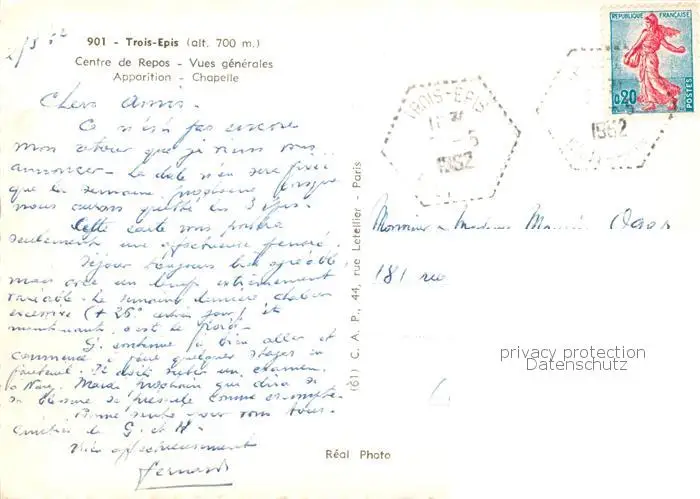 2/5 62
901 - Trois-Epis (alt. 700 m.)
Centre de Repos - Vues générales
Apparition - Chapelle
Chers amis -
Ce n'est pas encore
mon retour que je viens vous
annoncer - La date n'en sera fixée
que la semaine prochaine lorsque
nous aurons quitté les 3 Epis.
Cette carte vous portera
seulement une affectueuse pensée.
Séjour toujours très agréable
mais avec un temps extrêmement
variable. La semaine dernière chaleur
excessive (+ 25° certains jours) et
maintenant c'est le froid -
G. continue à bien aller et
commence à faire quelques
fauteuil. Il doit subir un examen
à Mardi prochain qui dira si
sa
Bonne santé pour vous tous -
amitiés de G. et M.
Très affectueusement
Fernand
(61) C. A. P., 44, rue Letellier - Paris
Réal Photo
TROIS-EPIS
5
1962
1962
REPUBLIQUE FRANÇAISE
0,20
POSTES
Monsieur & Madame
181 rue
privacy protection
Datenschutz